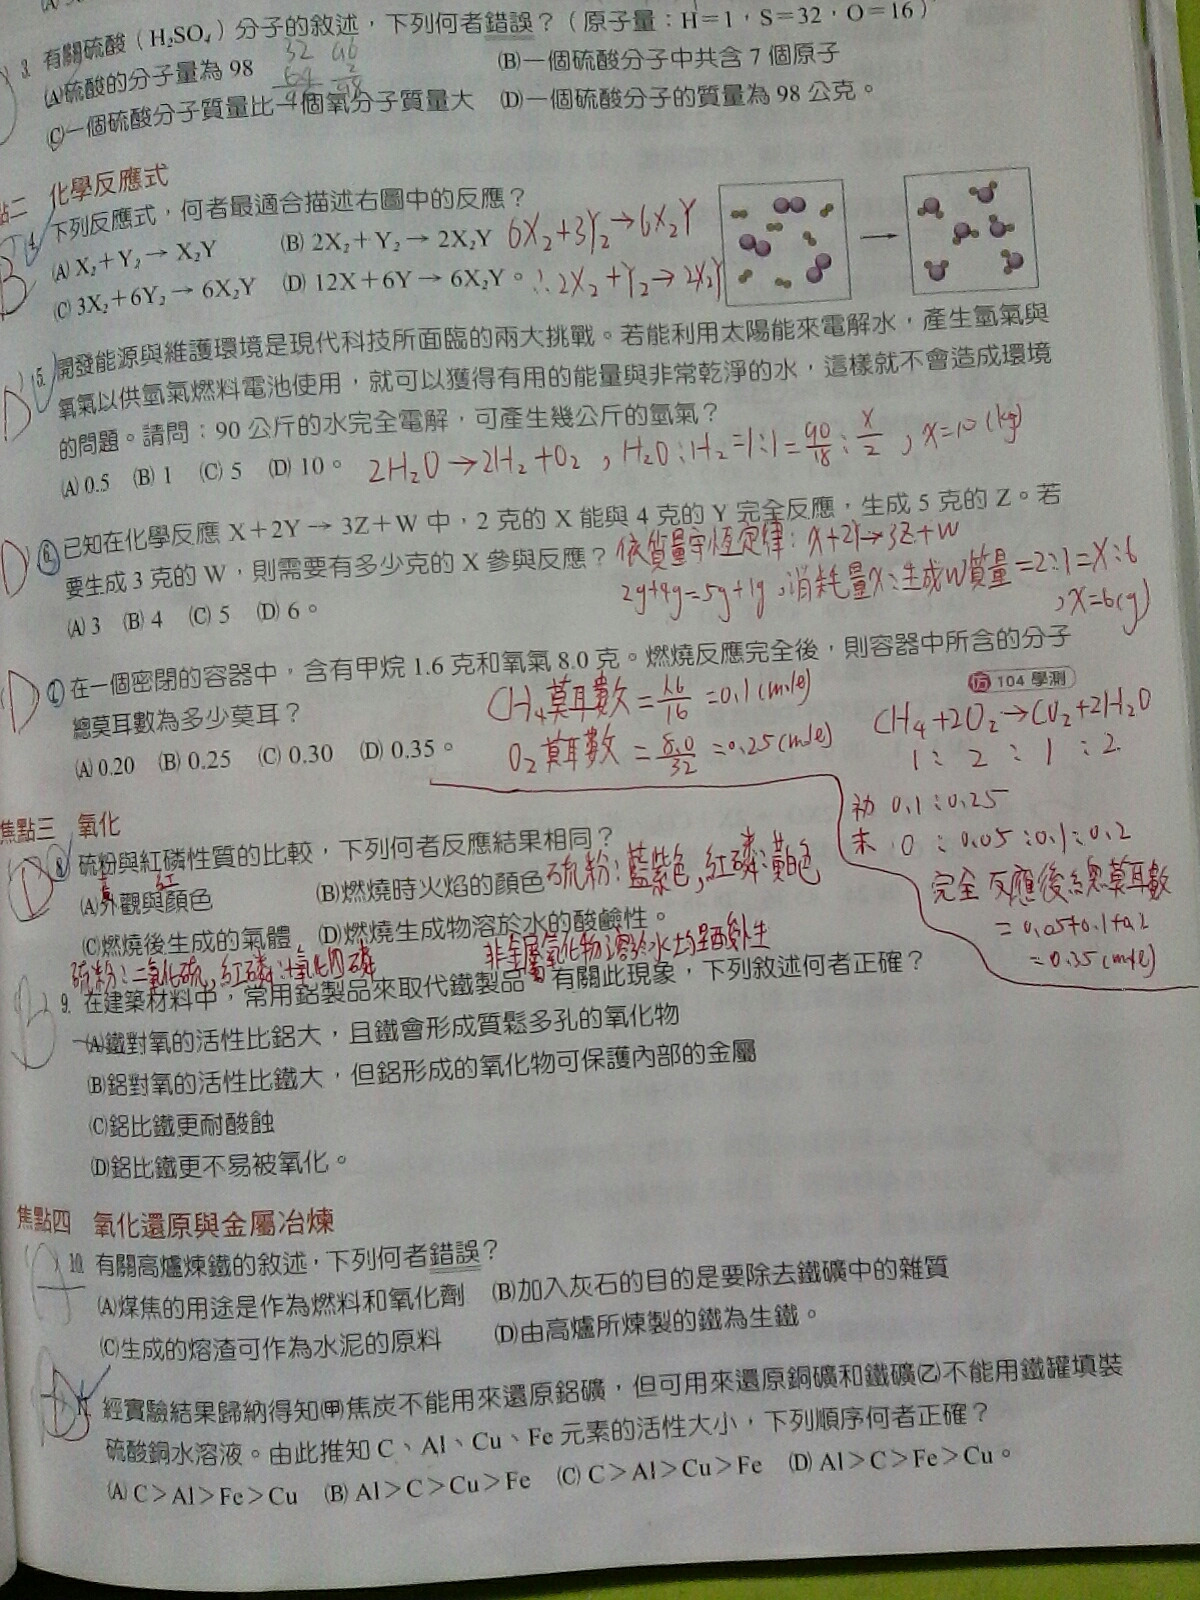 3. 有關硫酸（H₂SO₄）分子的敘述，下列何者錯誤？（原子量：H＝1，S＝32，O＝16）
(A)硫酸的分子量為 98 (B)一個硫酸分子中共含 7 個原子
32 96
64 2
98
(C)一個硫酸分子質量比一個氧分子質量大 (D)一個硫酸分子的質量為 98 公克。
點二 化學反應式
B 4. 下列反應式，何者最適合描述右圖中的反應？
(A) X₂＋Y₂→ X₂Y (B) 2X₂＋Y₂→ 2X₂Y 6X₂+3Y₂→6X₂Y
(C) 3X₂＋6Y₂→ 6X₂Y (D) 12X＋6Y→ 6X₂Y。 ∴2X₂+Y₂→2X₂Y
D 5. 開發能源與維護環境是現代科技所面臨的兩大挑戰。若能利用太陽能來電解水，產生氫氣與
氧氣以供氫氣燃料電池使用，就可以獲得有用的能量與非常乾淨的水，這樣就不會造成環境
的問題。請問：90 公斤的水完全電解，可產生幾公斤的氫氣？
(A) 0.5 (B) 1 (C) 5 (D) 10。 2H₂O→2H₂+O₂，H₂O：H₂=1：1=90/18：x/2，x=10(kg)
D 6. 已知在化學反應 X＋2Y→ 3Z＋W 中，2 克的 X 能與 4 克的 Y 完全反應，生成 5 克的 Z。若
要生成 3 克的 W，則需要有多少克的 X 參與反應？ 依質量守恆定律：X+2Y→3Z+W
(A) 3 (B) 4 (C) 5 (D) 6。 2g+4g=5g+1g，消耗量X：生成W質量=2：1=X：6
，X=6(g)
D 7. 在一個密閉的容器中，含有甲烷 1.6 克和氧氣 8.0 克。燃燒反應完全後，則容器中所含的分子
總莫耳數為多少莫耳？ 104 學測
(A) 0.20 (B) 0.25 (C) 0.30 (D) 0.35。
CH₄莫耳數=1.6/16=0.1(mole)
O₂莫耳數=8.0/32=0.25(mole)
CH₄+2O₂→CO₂+2H₂O
1：2：1：2
初 0.1：0.25
末 0：0.05：0.1：0.2
完全反應後總莫耳數
=0.05+0.1+0.2
=0.35(mole)
焦點三 氧化
D 8. 硫粉與紅磷性質的比較，下列何者反應結果相同？
黃 紅
(A)外觀與顏色 (B)燃燒時火焰的顏色 硫粉：藍紫色，紅磷：黃白色
(C)燃燒後生成的氣體 (D)燃燒生成物溶於水的酸鹼性。
硫粉：二氧化硫，紅磷：十氧化四磷 非金屬氧化物溶於水均呈酸性
B 9. 在建築材料中，常用鋁製品來取代鐵製品。有關此現象，下列敘述何者正確？
(A)鐵對氧的活性比鋁大，且鐵會形成質鬆多孔的氧化物
(B)鋁對氧的活性比鐵大，但鋁形成的氧化物可保護內部的金屬
(C)鋁比鐵更耐酸蝕
(D)鋁比鐵更不易被氧化。
焦點四 氧化還原與金屬冶煉
A 10. 有關高爐煉鐵的敘述，下列何者錯誤？
(A)煤焦的用途是作為燃料和氧化劑 (B)加入灰石的目的是要除去鐵礦中的雜質
(C)生成的熔渣可作為水泥的原料 (D)由高爐所煉製的鐵為生鐵。
D 經實驗結果歸納得知(甲)焦炭不能用來還原鋁礦，但可用來還原銅礦和鐵礦(乙)不能用鐵罐填裝
硫酸銅水溶液。由此推知 C、Al、Cu、Fe 元素的活性大小，下列順序何者正確？
(A) C＞Al＞Fe＞Cu (B) Al＞C＞Cu＞Fe (C) C＞Al＞Cu＞Fe (D) Al＞C＞Fe＞Cu。